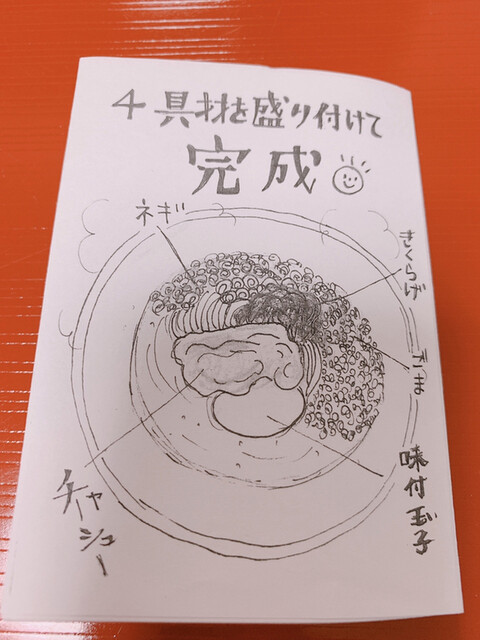 4 具材を盛り付けて
完成
ネギ
きくらげ
ごま
味付玉子
チャーシュー